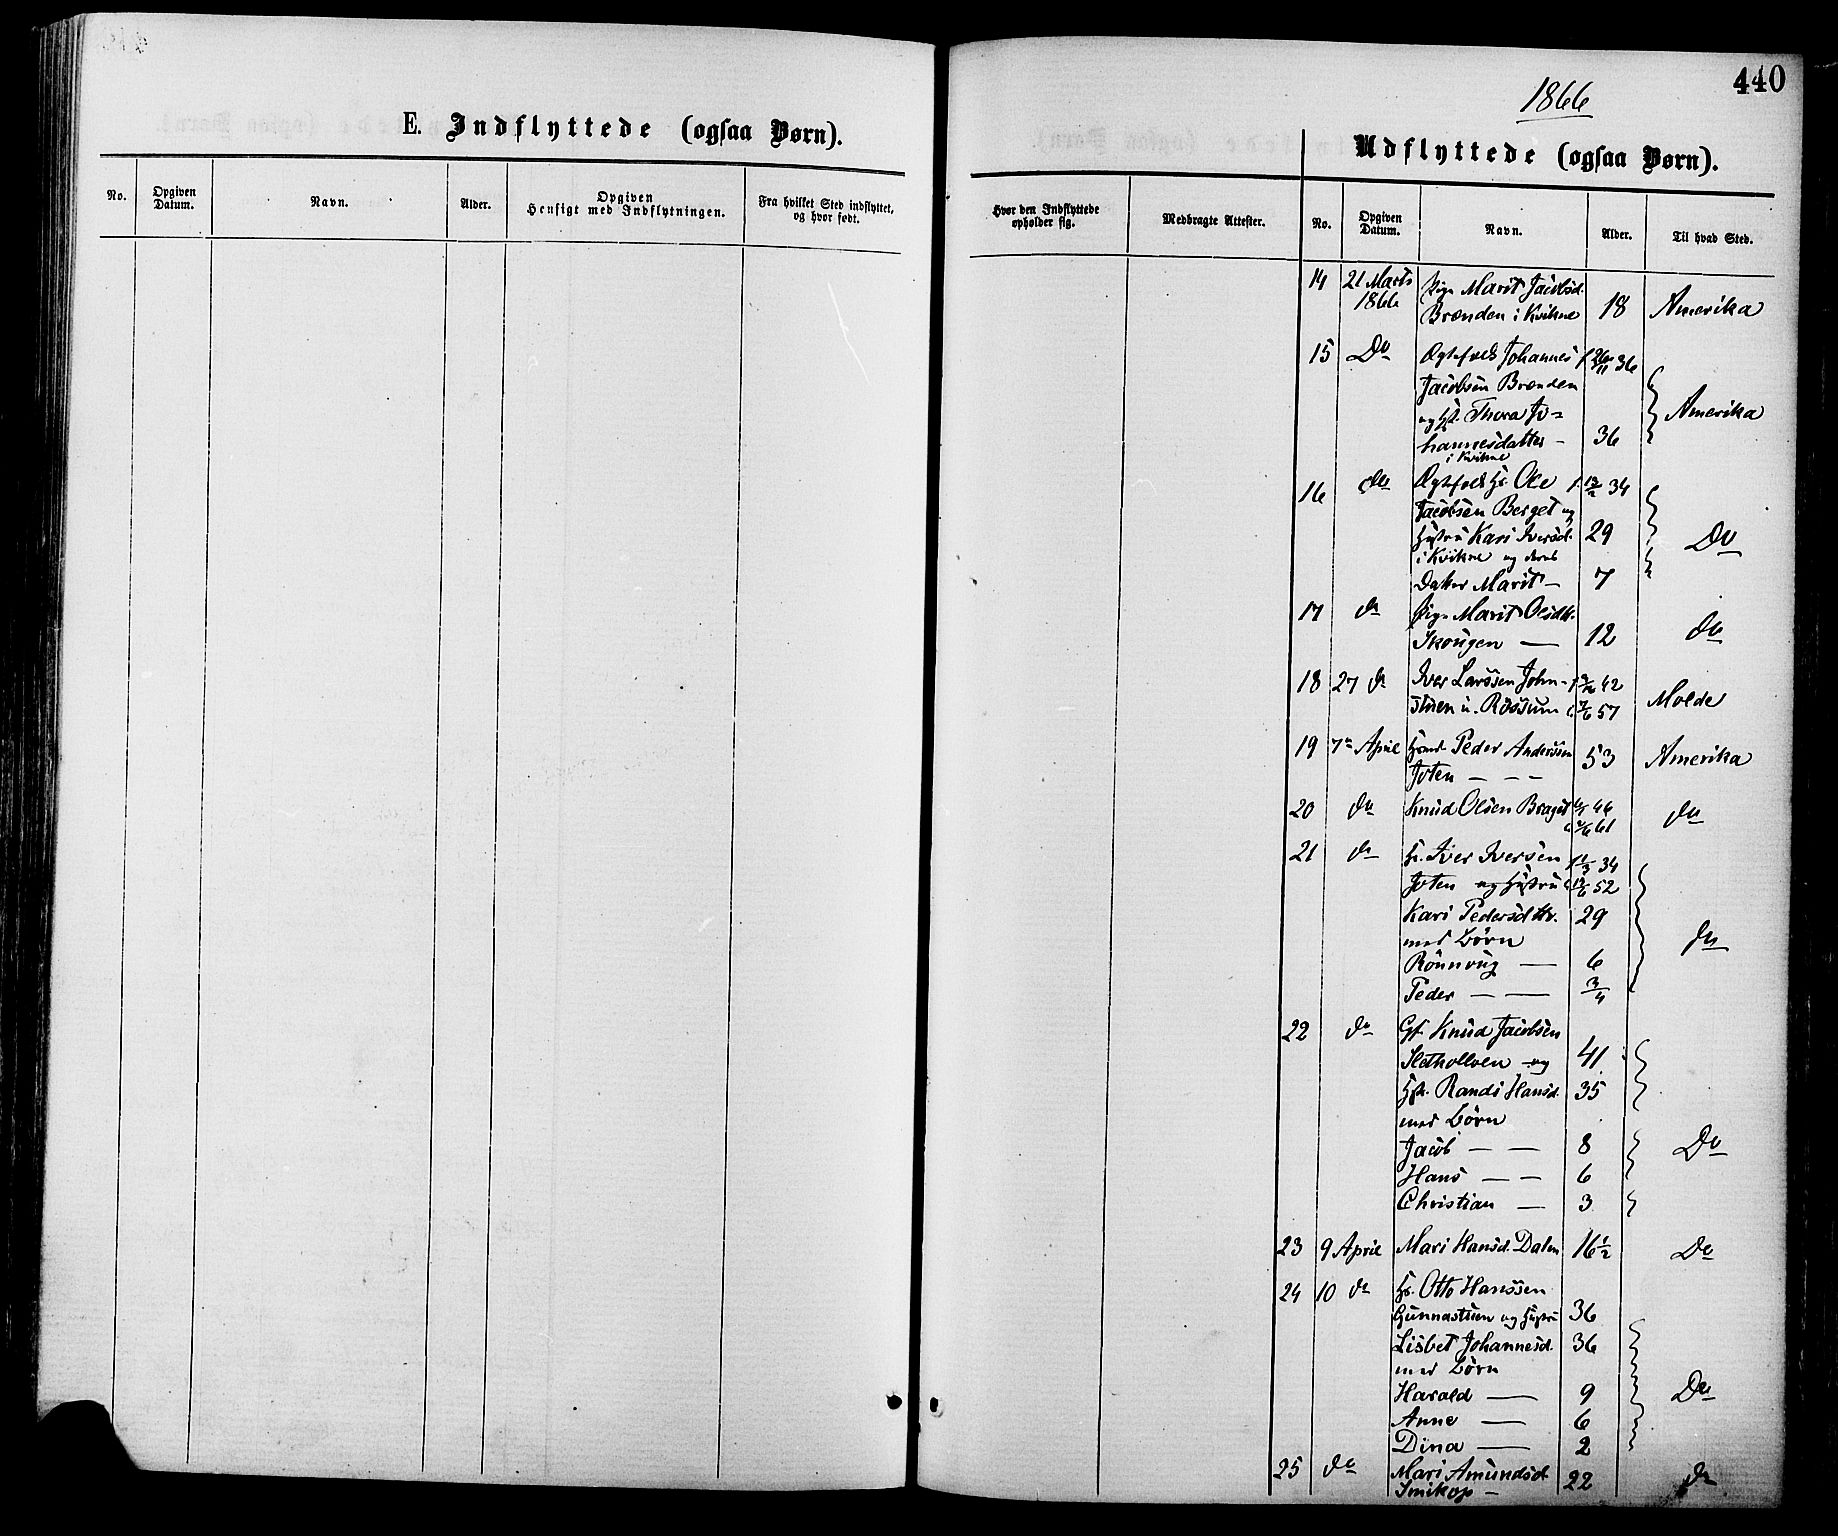 440
1866
E. Indflyttede (ogsaa Børn).
Udflyttede (ogsaa Børn).
No. Opgiven Datum. Navn. Alder. Opgiven Hensigt med Indflytningen. Fra hvilket Sted indflyttet, og hvor født.
Hvor den Indflyttede opholder sig. Medbragte Attester. No. Opgiven Datum. Navn. Alder. Til hvad Sted.
14 21 Marts Pige Marit Jacobsd.
1866 Brænden i Kvikne 18 Amerika
15 Do Ægtefolk Johannes f 26/11 36
Jacobsen Brænden
og H. Thora Jo= Amerika
hannesdatter - 36
i Kvikne
16 do Ægtefolk Ole f. 34
Jacobsen Berget og
Hustru Kari Iversd. 29 Do
i Kvikne og deres
Datter Marit - 7
17 do Pige Marit Olsdtr.
Skougen — 12 do
18 27 do Iver Larssen John- 42
stuen u. Russum 57 Molde
19 7de April Peder Anderssen 53 Amerika
Joten - - -
20 do Knud Olsen Braget 46 do
61
21 do Iver Iversen 34
Joten og Hustru 52
Kari Pedersdtr. 29
med Børn do
Rönnoug — 6
Peder — — 3/4
22 do Knud Jacobsen
Sletholloen og 41
Hstr. Randi Hansd. 35
med Børn
Jacob — — 8 Do
Hans — — 6
Christian — 3
23 9 April Mari Hansd. Dalen 16 1/2 Do
24 10 do Otto Hanssen
Gunnastuen og Hustru 36
Lisbet Johannesd. 36
med Børn
Harald — 9 Do
Anne — 6
Dina — 2
25 do Mari Amundsd. 22 do
Smikop -